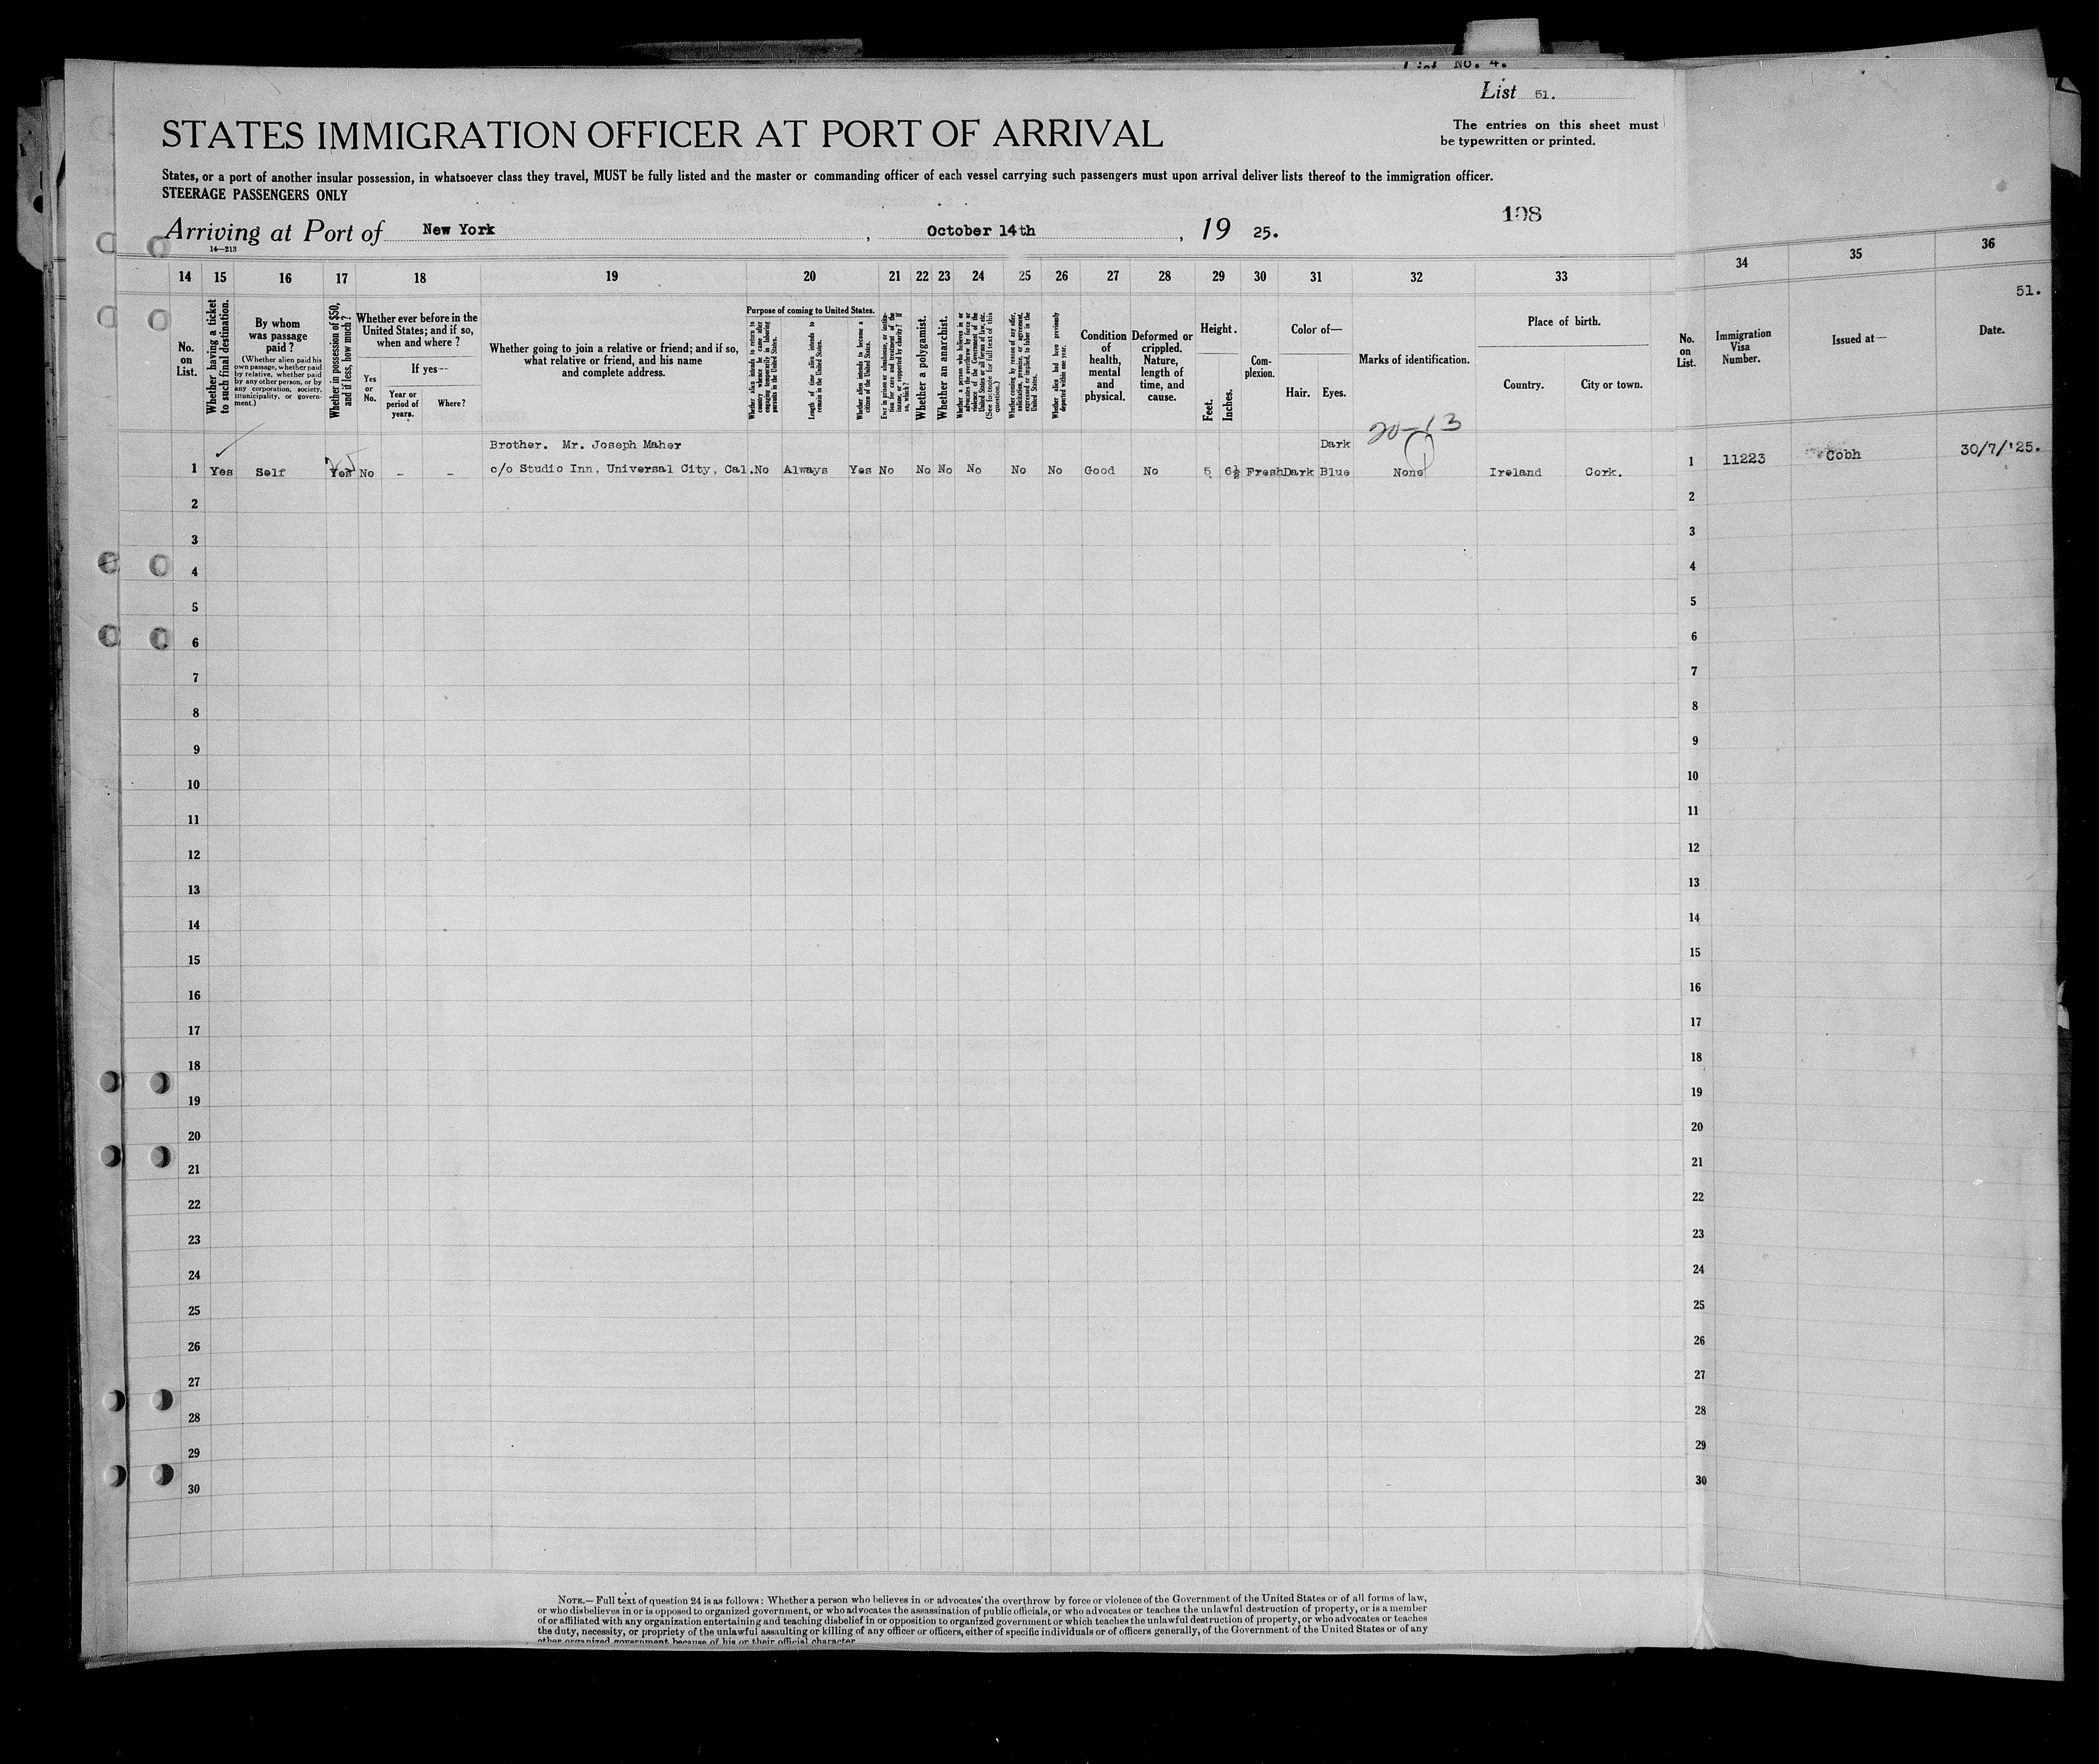 List No. 4.
List 51.
STATES IMMIGRATION OFFICER AT PORT OF ARRIVAL
The entries on this sheet must
be typewritten or printed.
States, or a port of another insular possession, in whatsoever class they travel, MUST be fully listed and the master or commanding officer of each vessel carrying such passengers must upon arrival deliver lists thereof to the immigration officer.
STEERAGE PASSENGERS ONLY
198
Arriving at Port of New York, October 14th, 19 25.
14—213
14 15 16 17 18 19 20 21 22 23 24 25 26 27 28 29 30 31 32 33 34 35 36
51.
No. on List.
Whether having a ticket to such final destination.
By whom was passage paid?
(Whether alien paid his own passage, whether paid by relative, whether paid by any other person, or by any corporation, society, municipality, or government.)
Whether in possession of $50, and if less, how much?
Whether ever before in the United States; and if so, when and where?
Yes or No.
If yes—
Year or period of years.
Where?
Whether going to join a relative or friend; and if so, what relative or friend, and his name and complete address.
Purpose of coming to United States.
Whether alien intends to return to country whence he came after engaging temporarily in laboring pursuits in the United States.
Length of time alien intends to remain in the United States.
Whether alien intends to become a citizen of the United States.
Ever in prison or almshouse, or institution for care and treatment of the insane, or supported by charity? If so, which?
Whether a polygamist.
Whether an anarchist.
Whether a person who believes in or advocates the overthrow by force or violence of the Government of the United States or all forms of law, etc. (See footnote for full text of this question.)
Whether coming by reason of any offer, solicitation, promise, or agreement, expressed or implied, to labor in the United States.
Whether alien had been previously deported within one year.
Condition of health, mental and physical.
Deformed or crippled. Nature, length of time, and cause.
Height.
Feet.
Inches.
Complexion.
Color of—
Hair. Eyes.
Marks of identification.
Place of birth.
Country. City or town.
No. on List.
Immigration Visa Number.
Issued at—
Date.
20-13
Brother. Mr. Joseph Maher Dark
1 Yes Self Yes No - - c/o Studio Inn, Universal City, Cal. No Always Yes No No No No No No Good No 5 6½ Fresh Dark Blue None Ireland Cork. 1 11223 Cobh 30/7/'25.
2 2
3 3
4 4
5 5
6 6
7 7
8 8
9 9
10 10
11 11
12 12
13 13
14 14
15 15
16 16
17 17
18 18
19 19
20 20
21 21
22 22
23 23
24 24
25 25
26 26
27 27
28 28
29 29
30 30
NOTE.—Full text of question 24 is as follows: Whether a person who believes in or advocates the overthrow by force or violence of the Government of the United States or of all forms of law,
or who disbelieves in or is opposed to organized government, or who advocates the assassination of public officials, or who advocates or teaches the unlawful destruction of property, or is a member
of or affiliated with any organization entertaining and teaching disbelief in or opposition to organized government or which teaches the unlawful destruction of property, or who advocates or teaches
the duty, necessity, or propriety of the unlawful assaulting or killing of any officer or officers, either of specific individuals or of officers generally, of the Government of the United States or of any
other organized government because of his or their official character